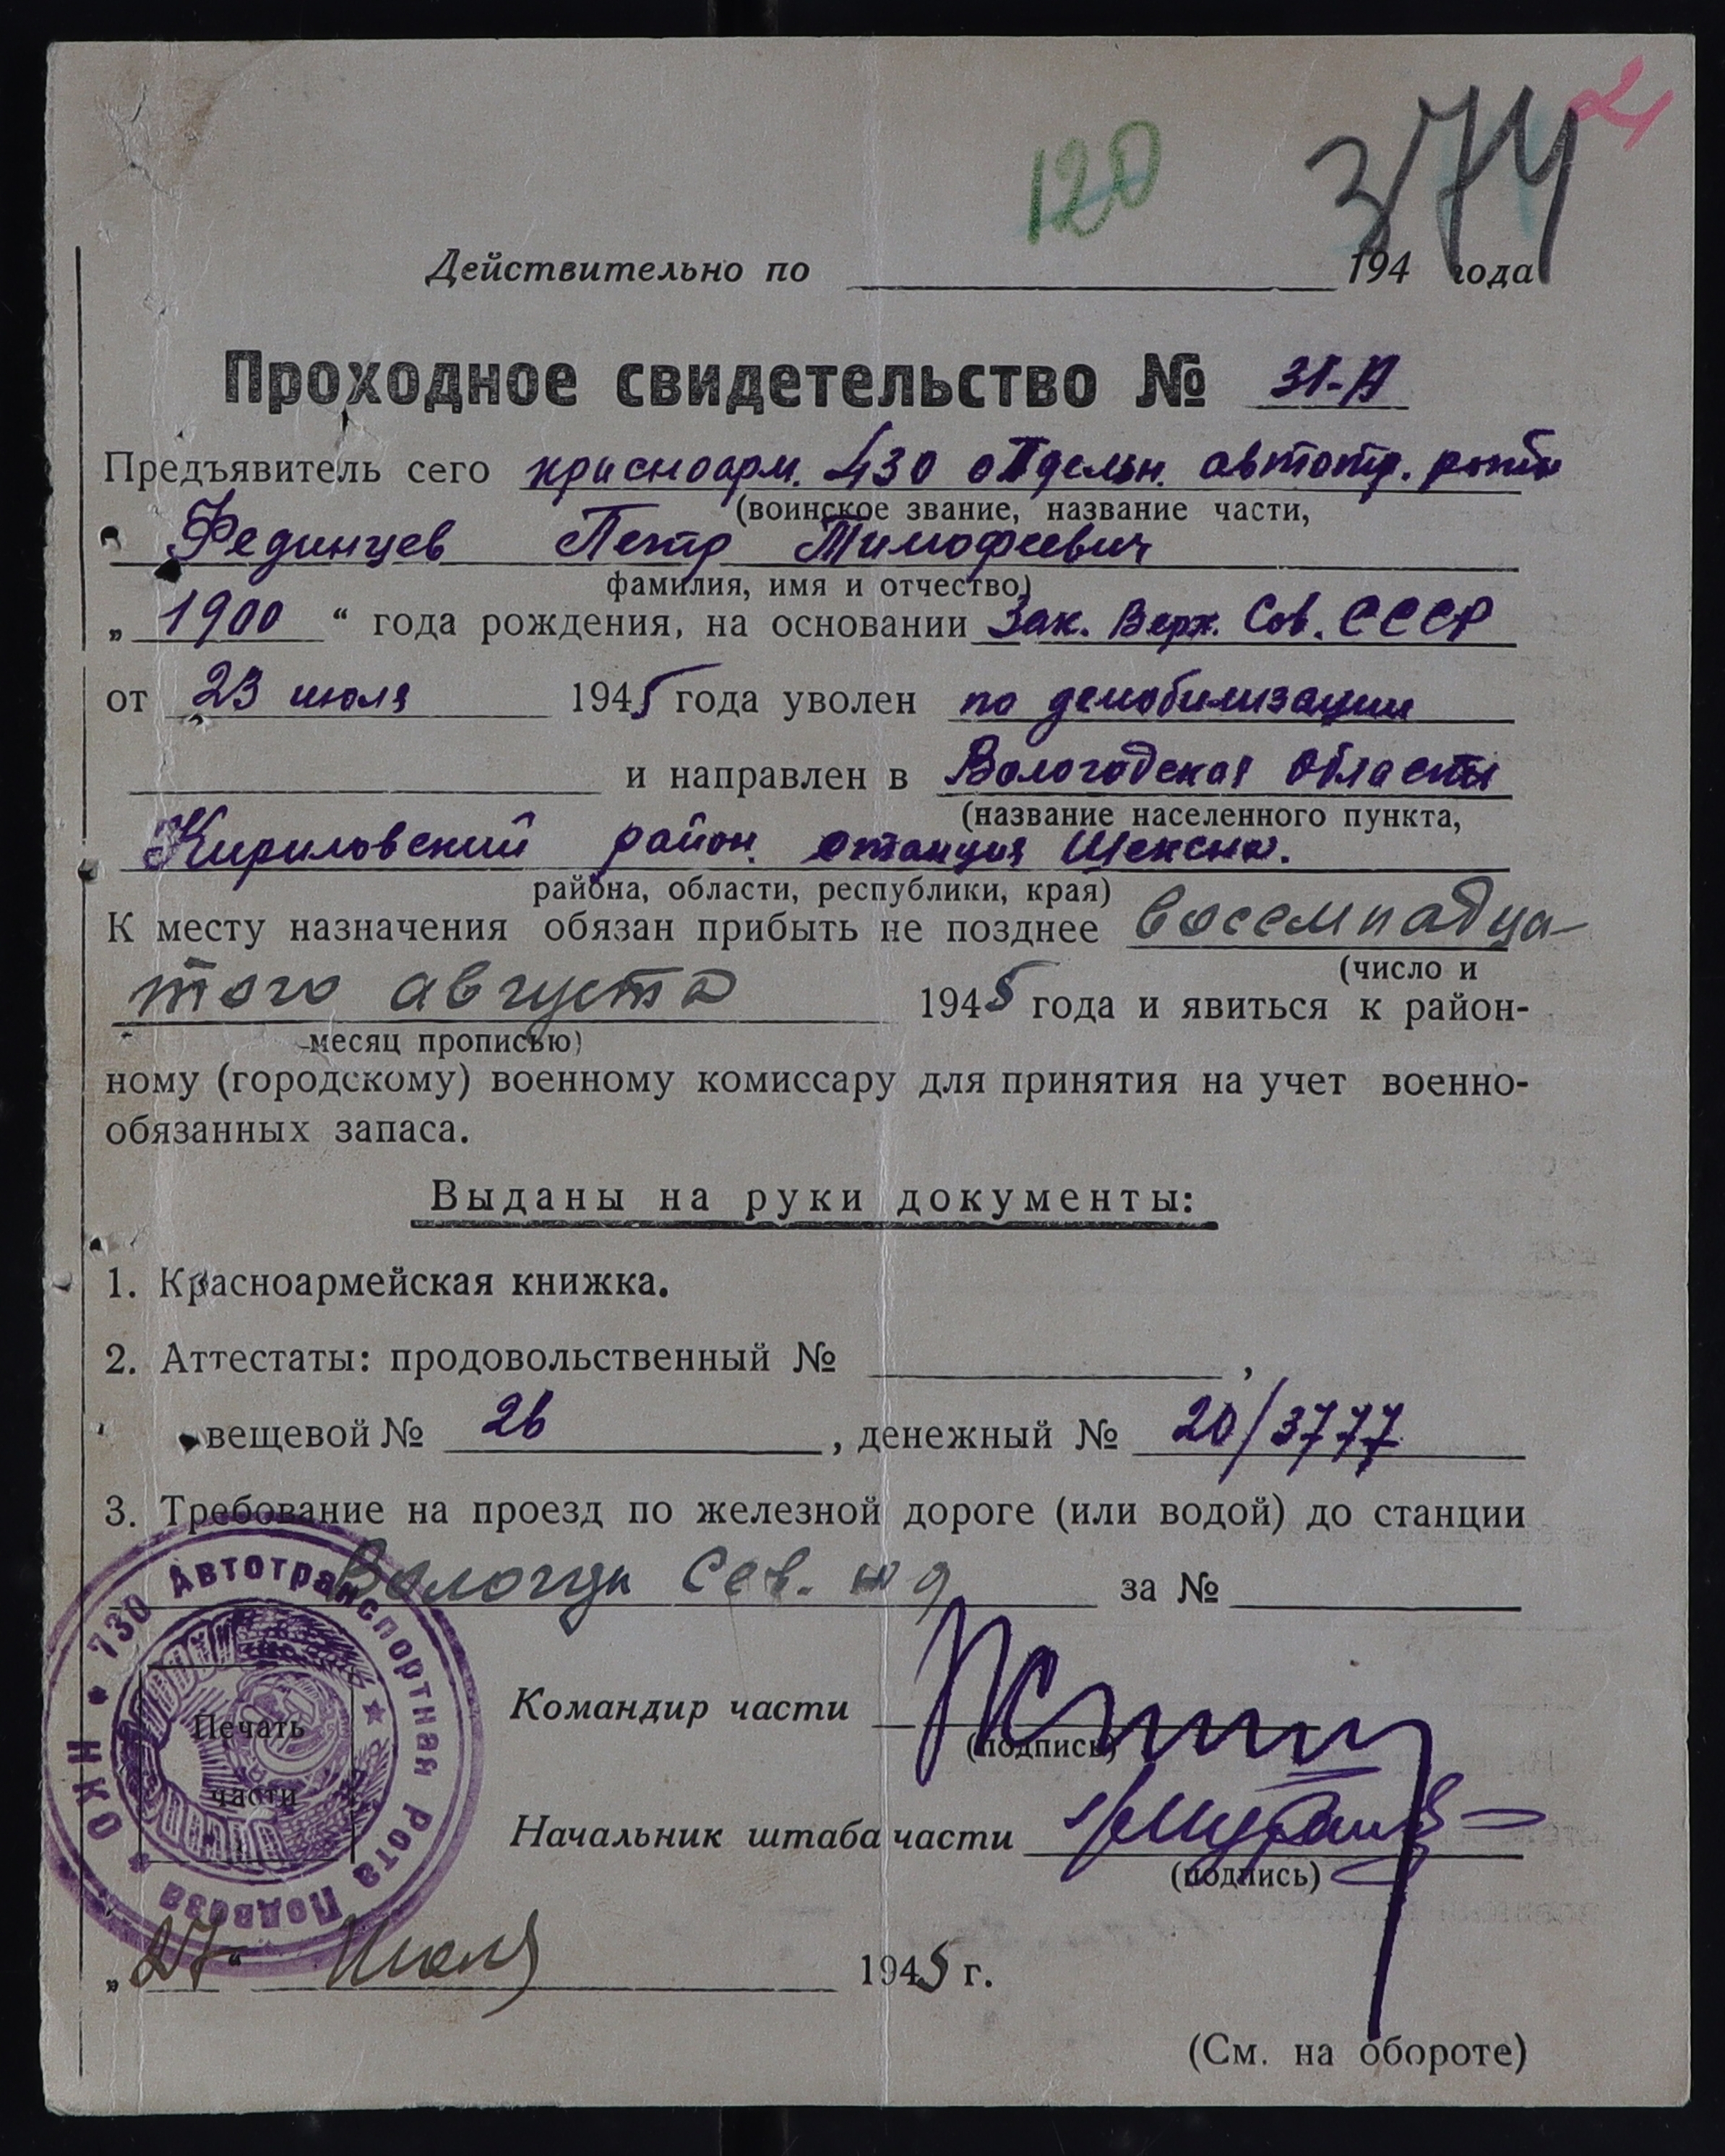 120 374
Действительно по 194 года
Проходное свидетельство № 31-А
Предъявитель сего красноарм. 730 отдельн. автотр. роты
(воинское звание, название части,
Фединцев Петр Тимофеевич
фамилия, имя и отчество)
„ 1900 “ года рождения, на основании Зак. Верх. Сов. СССР
от 23 июля 1945 года уволен по демобилизации
и направлен в Вологодская область
(название населенного пункта,
Кириловский район. станция Шексна.
района, области, республики, края)
К месту назначения обязан прибыть не позднее восемнадца-
(число и
того августа 1945 года и явиться к район-
месяц прописью)
ному (городскому) военному комиссару для принятия на учет военно-
обязанных запаса.
Выданы на руки документы:
1. Красноармейская книжка.
2. Аттестаты: продовольственный № ,
вещевой № 26 , денежный № 20/3777
3. Требование на проезд по железной дороге (или водой) до станции
Вологды Сев. жд за №
730 Автотранспортная Рота Подвоза НКО
Печать
части
Командир части
(подпись)
Начальник штаба части
(подпись)
„27“ Июля 1945 г.
(См. на обороте)